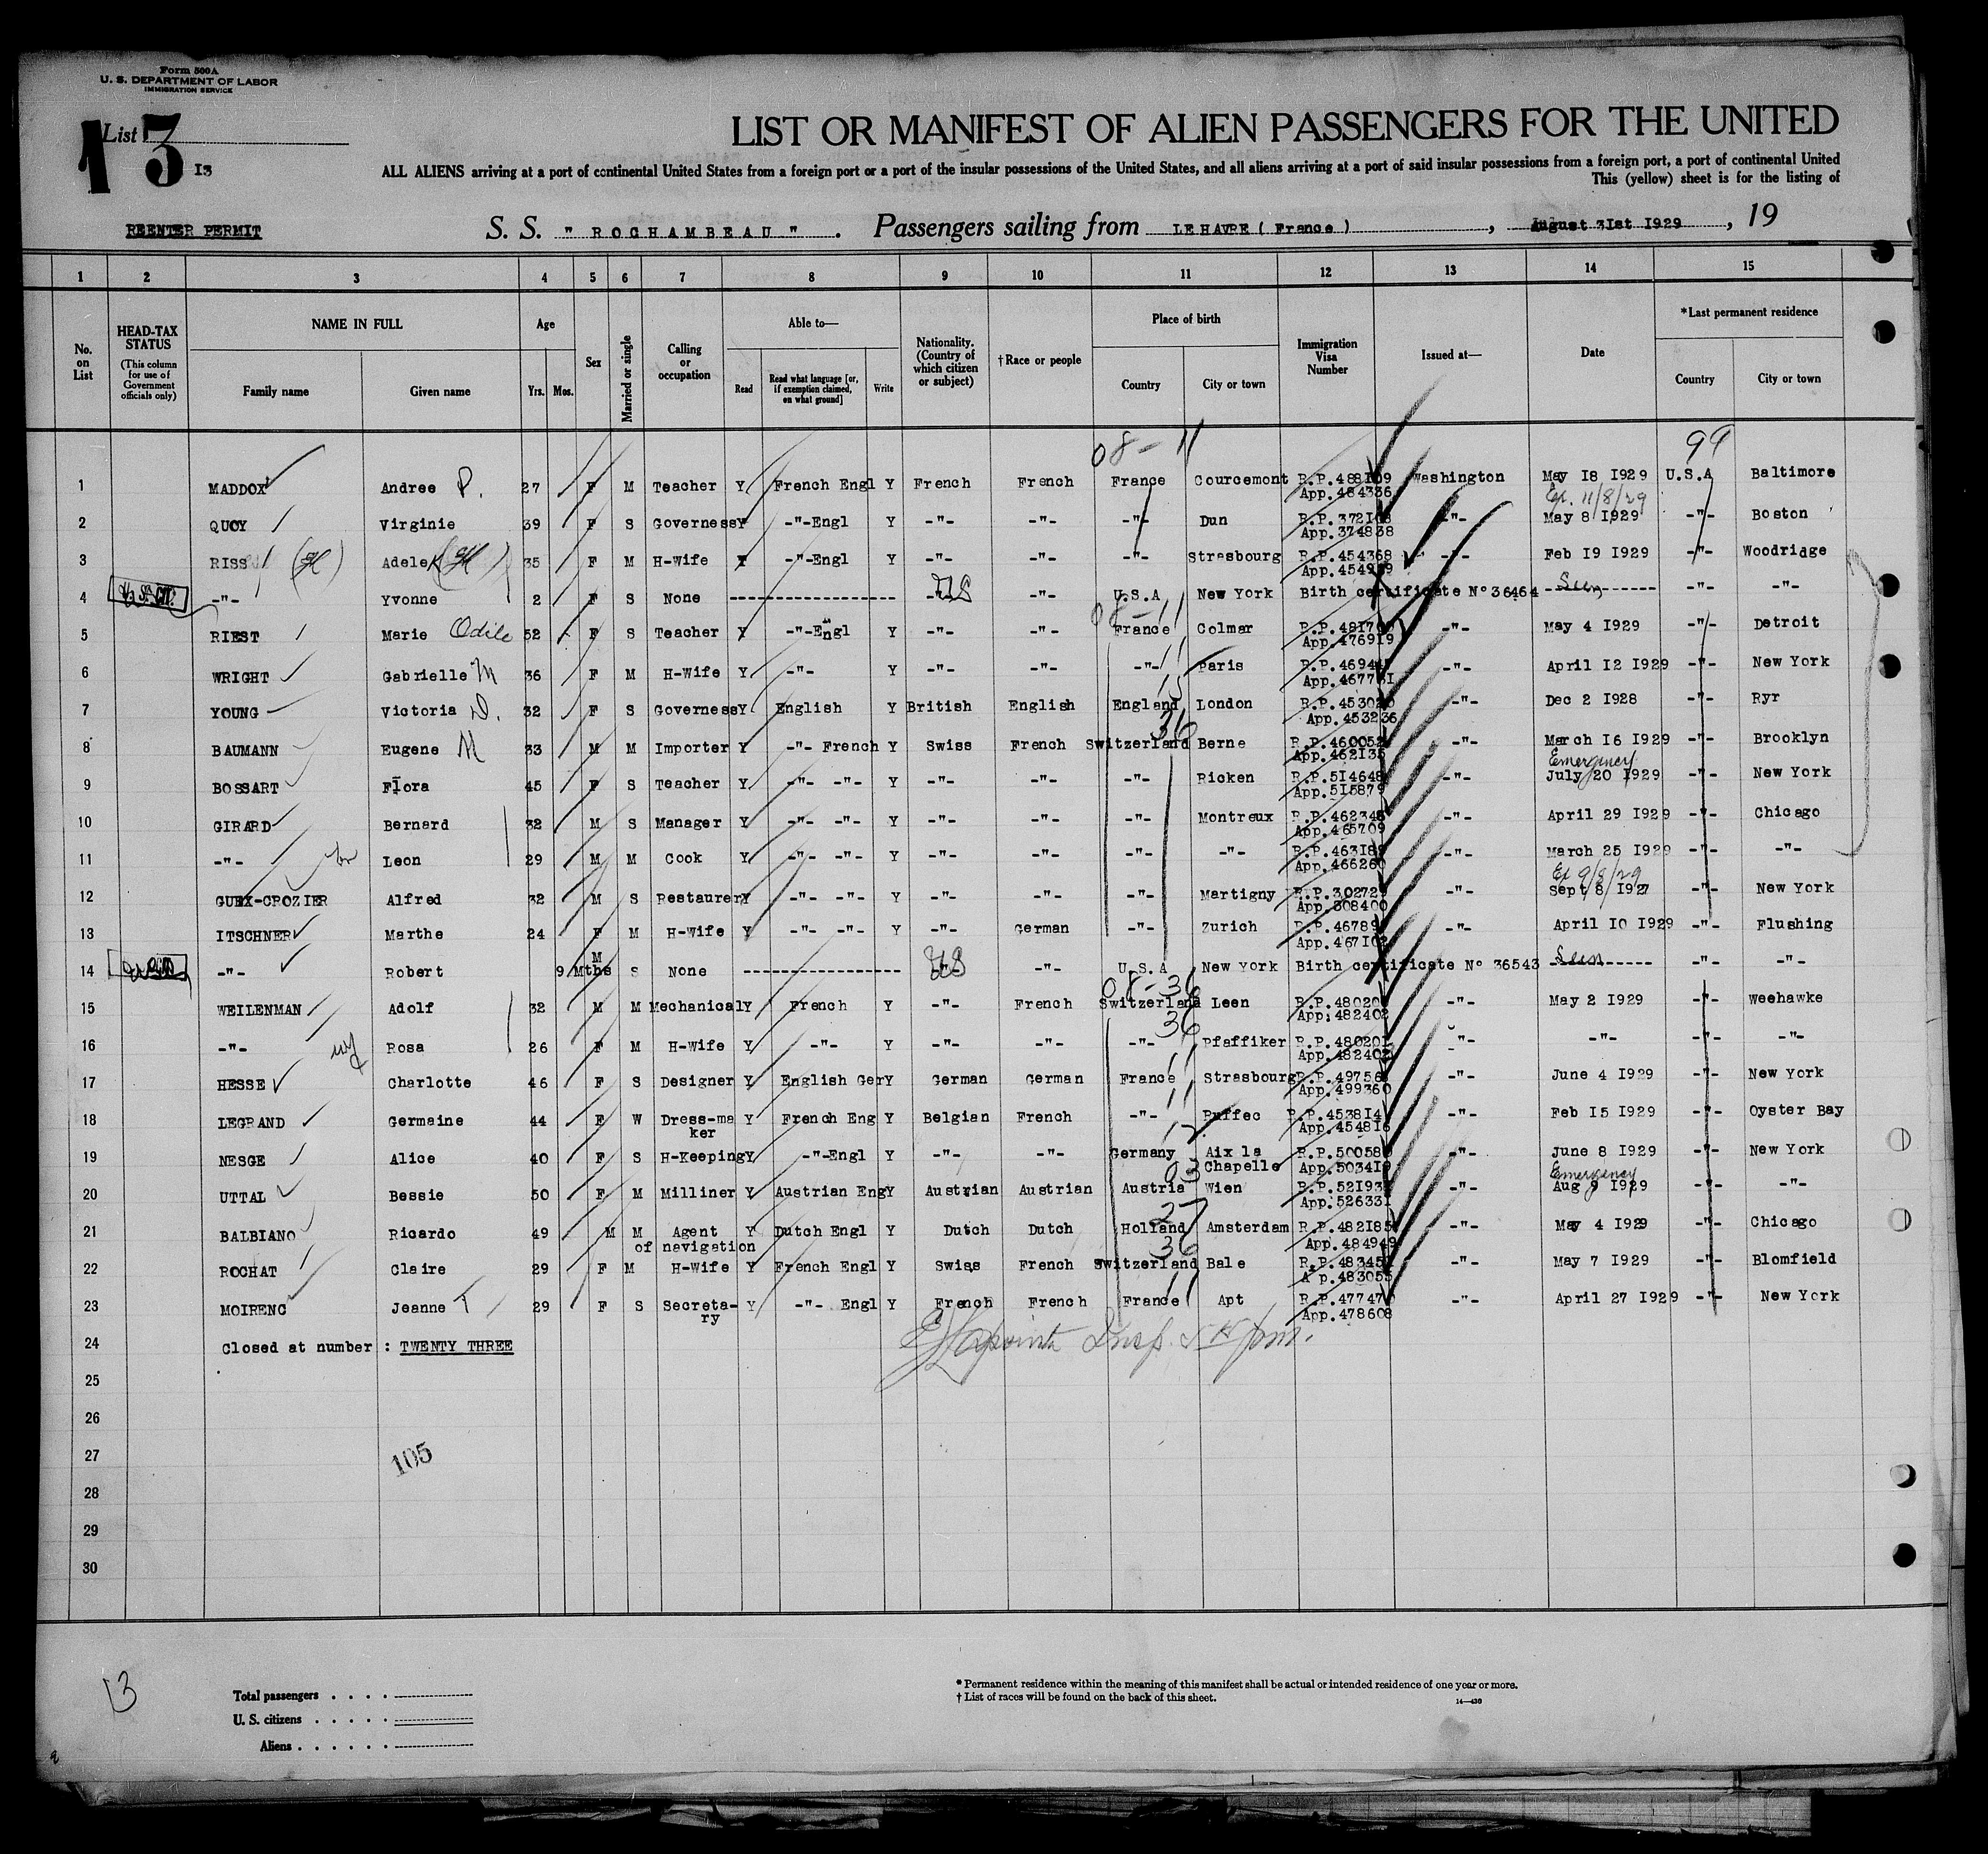 Form 500A
U. S. DEPARTMENT OF LABOR
IMMIGRATION SERVICE
List 13
LIST OR MANIFEST OF ALIEN PASSENGERS FOR THE UNITED
ALL ALIENS arriving at a port of continental United States from a foreign port or a port of the insular possessions of the United States, and all aliens arriving at a port of said insular possessions from a foreign port, a port of continental United
This (yellow) sheet is for the listing of
REENTER PERMIT S. S. " ROCHAMBEAU " . Passengers sailing from LE HAVRE ( France ) , August 3Ist I929 , 19
1 2 3 4 5 6 7 8 9 10 11 12 13 14 15
No. on List HEAD-TAX STATUS (This column for use of Government officials only) NAME IN FULL Family name Given name Age Yrs. Mos. Sex Married or single Calling or occupation Able to— Read Read what language [or, if exemption claimed, on what ground] Write Nationality. (Country of which citizen or subject) †Race or people Place of birth Country City or town Immigration Visa Number Issued at— Date *Last permanent residence Country City or town
08-11 99
1 MADDOX Andree P. 27 F M Teacher Y French Engl Y French French France Courcemont R.P.488I09 Washington May I8 I929 U.S.A Baltimore
App.484336 Ex. 11/8/29
2 QUOY Virginie 39 F S Governess Y -"-Engl Y -"- -"- -"- Dun R.P.372I08 -"- May 8 I929 -"- Boston
App.374838
3 RISS Adele 35 F M H-Wife Y -"-Engl Y -"- -"- -"- Strasbourg R.P.454368 -"- Feb I9 I929 -"- Woodridge
4 U.S. CIT. -"- Yvonne 2 F S None US -"- U.S.A New York Birth certificate N° 36464 Seen -"- -"-
5 RIEST Marie Odile 52 F S Teacher Y -"-Engl Y -"- -"- France Colmar -"- May 4 I929 -"- Detroit
App.476919
6 WRIGHT Gabrielle M 36 F M H-Wife Y -"- Y -"- -"- -"- Paris -"- April I2 I929 -"- New York
7 YOUNG Victoria D. 32 F S Governess Y English Y British English England London -"- Dec 2 I928 -"- Ryr
App.453236
8 BAUMANN Eugene M 33 M M Importer Y -"- French Y Swiss French Switzerland Berne R.P.460052 -"- March I6 I929 -"- Brooklyn
App.462I35 Emergency
9 BOSSART Flora 45 F S Teacher Y -"- -"- Y -"- -"- -"- Ricken R.P.5I4648 -"- July 20 I929 -"- New York
App.5I5879
10 GIRARD Bernard 32 M S Manager Y -"- -"- Y -"- -"- -"- Montreux R.P.462348 -"- April 29 I929 -"- Chicago
App.465709
11 -"- Leon 29 M M Cook Y -"- -"- Y -"- -"- -"- -"- -"- March 25 I929 -"- -"-
App.466260 Ex 9/8/29
12 GUEX-CROZIER Alfred 32 M S Restaurer Y -"- -"- Y -"- -"- -"- Martigny -"- Sept 8 I927 -"- New York
App.308400
13 ITSCHNER Marthe 24 F M H-Wife Y -"- -"- Y -"- German -"- Zurich -"- April I0 I929 -"- Flushing
14 -"- Robert 9 Mths M S None US -"- U.S.A New York Birth certificate N° 36543 Seen -"- -"-
08-36
15 WEILENMAN Adolf 32 M M Mechanical Y French Y -"- French Switzerland Leen -"- May 2 I929 -"- Weehawke
App.482402
16 -"- Rosa 26 F M H-Wife Y -"- Y -"- -"- -"- Pfaffiker R.P.48020I -"- -"- -"- -"-
17 HESSE Charlotte 46 F S Designer Y English Ger Y German German France Strasbourg -"- June 4 I929 -"- New York
App.499360
18 LEGRAND Germaine 44 F W Dress-ma Y French Eng Y Belgian French -"- Ruffec R.P.4538I4 -"- Feb I5 I929 -"- Oyster Bay
ker App.4548I6
19 NESGE Alice 40 F S H-Keeping Y -"-Engl Y -"- -"- Germany Aix la -"- June 8 I929 -"- New York
Chapelle Emergency
20 UTTAL Bessie 50 F M Milliner Y Austrian Eng Y Austrian Austrian Austria Wien -"- Aug 9 I929 -"- -"-
App.52633I
21 BALBIANO Ricardo 49 M M Agent Y Dutch Engl Y Dutch Dutch Holland Amsterdam R.P.482I85 -"- May 4 I929 -"- Chicago
of navigation App.484949
22 ROCHAT Claire 29 F M H-Wife Y French Engl Y Swiss French Switzerland Bale -"- May 7 I929 -"- Blomfield
23 MOIRENC Jeanne T 29 F S Secreta- Y -"- Engl Y French French France Apt -"- April 27 I929 -"- New York
ry App.478608
24 Closed at number : TWENTY THREE
25
26
27 105
28
29
30
13
Total passengers
U. S. citizens
Aliens
* Permanent residence within the meaning of this manifest shall be actual or intended residence of one year or more.
† List of races will be found on the back of this sheet. 14—430